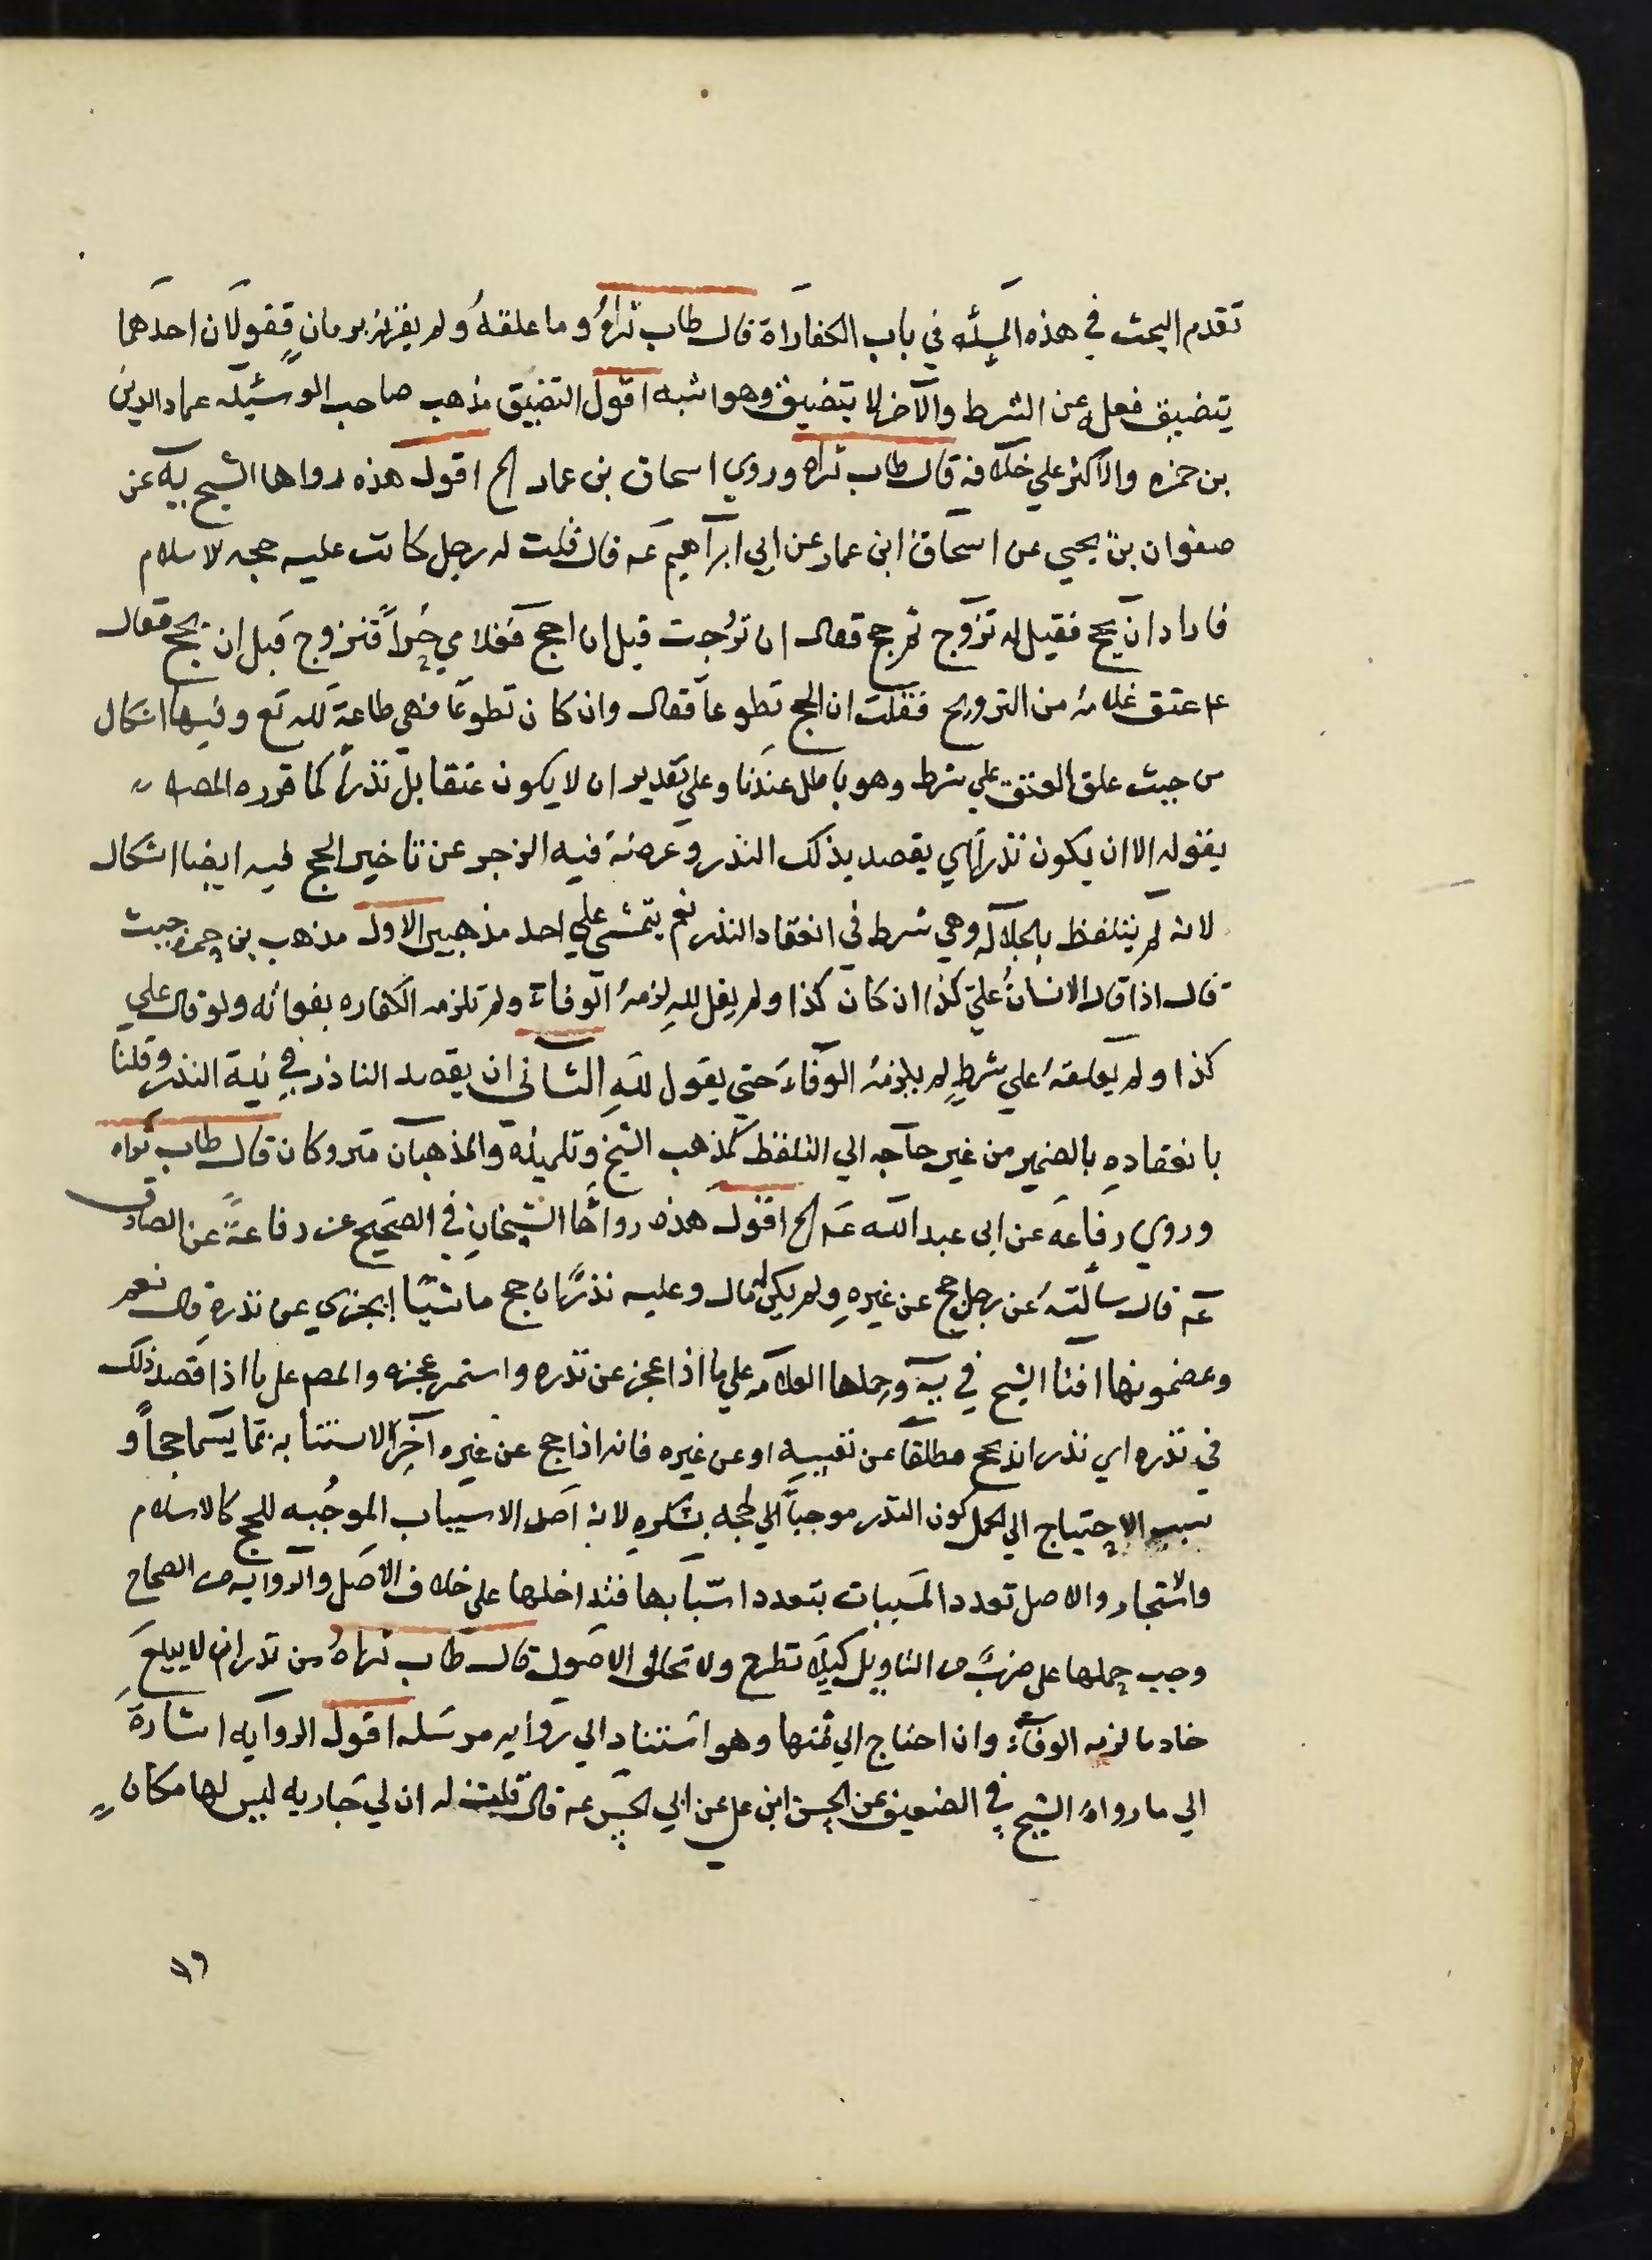 تقدم البحث في هذه المسئله في باب الكفاراة قال طاب ثراه وما علقه ولم يقرنه بزمان فقولان احدهما
يتضيق فعله عن الشرط والآخر لا يتضيق وهو اشبه اقول التضيق مذهب صاحب الوسيله عماد الدين
بن حمزه والاكثر علي خلافه قال طاب ثراه وروي اسحاق بن عمار الخ اقول هذه رواها الشيخ يه عن
صفوان بن يحيي عن اسحاق ابن عمار عن ابي ابراهيم عه قال قلت له رجل كانت عليه حجه الاسلام
فاراد ان يحج فقيل له تزوج ثم حج فقال ان تزوجت قبل ان احج فغلامي حراً فتزوج قبل ان يحج فقال
اعتق غلامه من التزويج فقلت ان الحج تطوعاً فقال وان كان تطوعاً فهي طاعة لله تع وفيها اشكال
من حيث علق العتق علي شرط وهو باطل عندنا وعلي تقدير ان لا يكون عتقا بل نذراً كما قرره المصه
بقوله الا ان يكون نذراً اي يقصد بذلك النذر وغرضه فيه الزجر عن تاخير الحج فيه ايضا اشكال
لانه لم يتلفظ بالجلاله وهي شرط في انعقاد النذر نعم يتمشي علي احد مذهبين الاول مذهب بن حمزه حيث
قال اذا قال الانسان عليّ كذا ان كان كذا ولم يقل للهِ لزمهُ الوفاء ولم تلزمه الكفاره بفواته ولو قال علي
كذا ولم يعلقهُ علي شرطٍ لم يلزمهُ الوفاء حتي يقول للهِ الثاني ان يقصد الناذر في نية النذر وقلنا
بانعقادهِ بالضمير من غير حاجه الي التلفظ كمذهب الشيخ وتلميذه والمذهبان متروكان قال طاب ثراه
وروي رفاعه عن ابي عبدالله عه الخ اقول هذه رواها الشيخانِ في الصحيح عن رفاعةً عن الصادق
عه قال سالتهُ عن رجل حج عن غيرهِ ولم يكن له مال وعليه نذرٌ ان حج ماشيًا ايجزي عن نذرهِ قال نعم
وعضمونها افتا الشيخ في يه وحملها العلامه علي ما اذا عجز عن نذره واستمر عجزه والمصه علي ما اذا قصد ذلك
في نذره اي نذر ان يحج مطلقاً عن نفسه او عن غيره فانه اذا حج عن غيره آجزا لاستنابه بما يسما حجاً و
سبب الاحتياج الي الحمل كون النذر موجباً الي لحجه بشكرهِ لانه احد الاسباب الموجبه للحج كالاسلام
والاستجار والاصل تعدد المسببات بتعدد اسبابها فتداخلها علي خلاف الاصل والروايه من الصحاح
وجب حملها علي ضربٍ من التاويل كيلا تطرح ولا تخالف الاصول قال طاب ثراهُ من نذر ان لا يبيع
خادما لزمه الوفاء وان احتاج الي ثمنها وهو استناد الي روايه مرسله اقول الروايه اشارة
الي ما رواهُ الشيخ في الضعيف عن الحسن ابن علي عن ابي الحسن عه قال قلت له ان لي جاريه ليس لها مكان